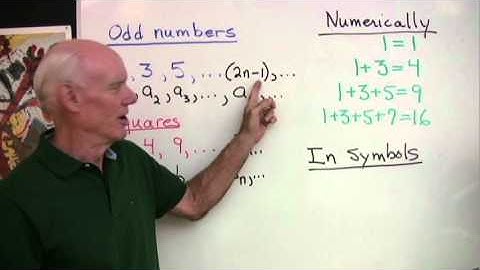 Odd numbers
, 3, 5, ... (2n-1), ...
a₂, a₃, ..., a ...
quares
4, 9, ...
n, ...
Numerically
1 = 1
1+3 = 4
1+3+5 = 9
1+3+5+7 = 16
In Symbols